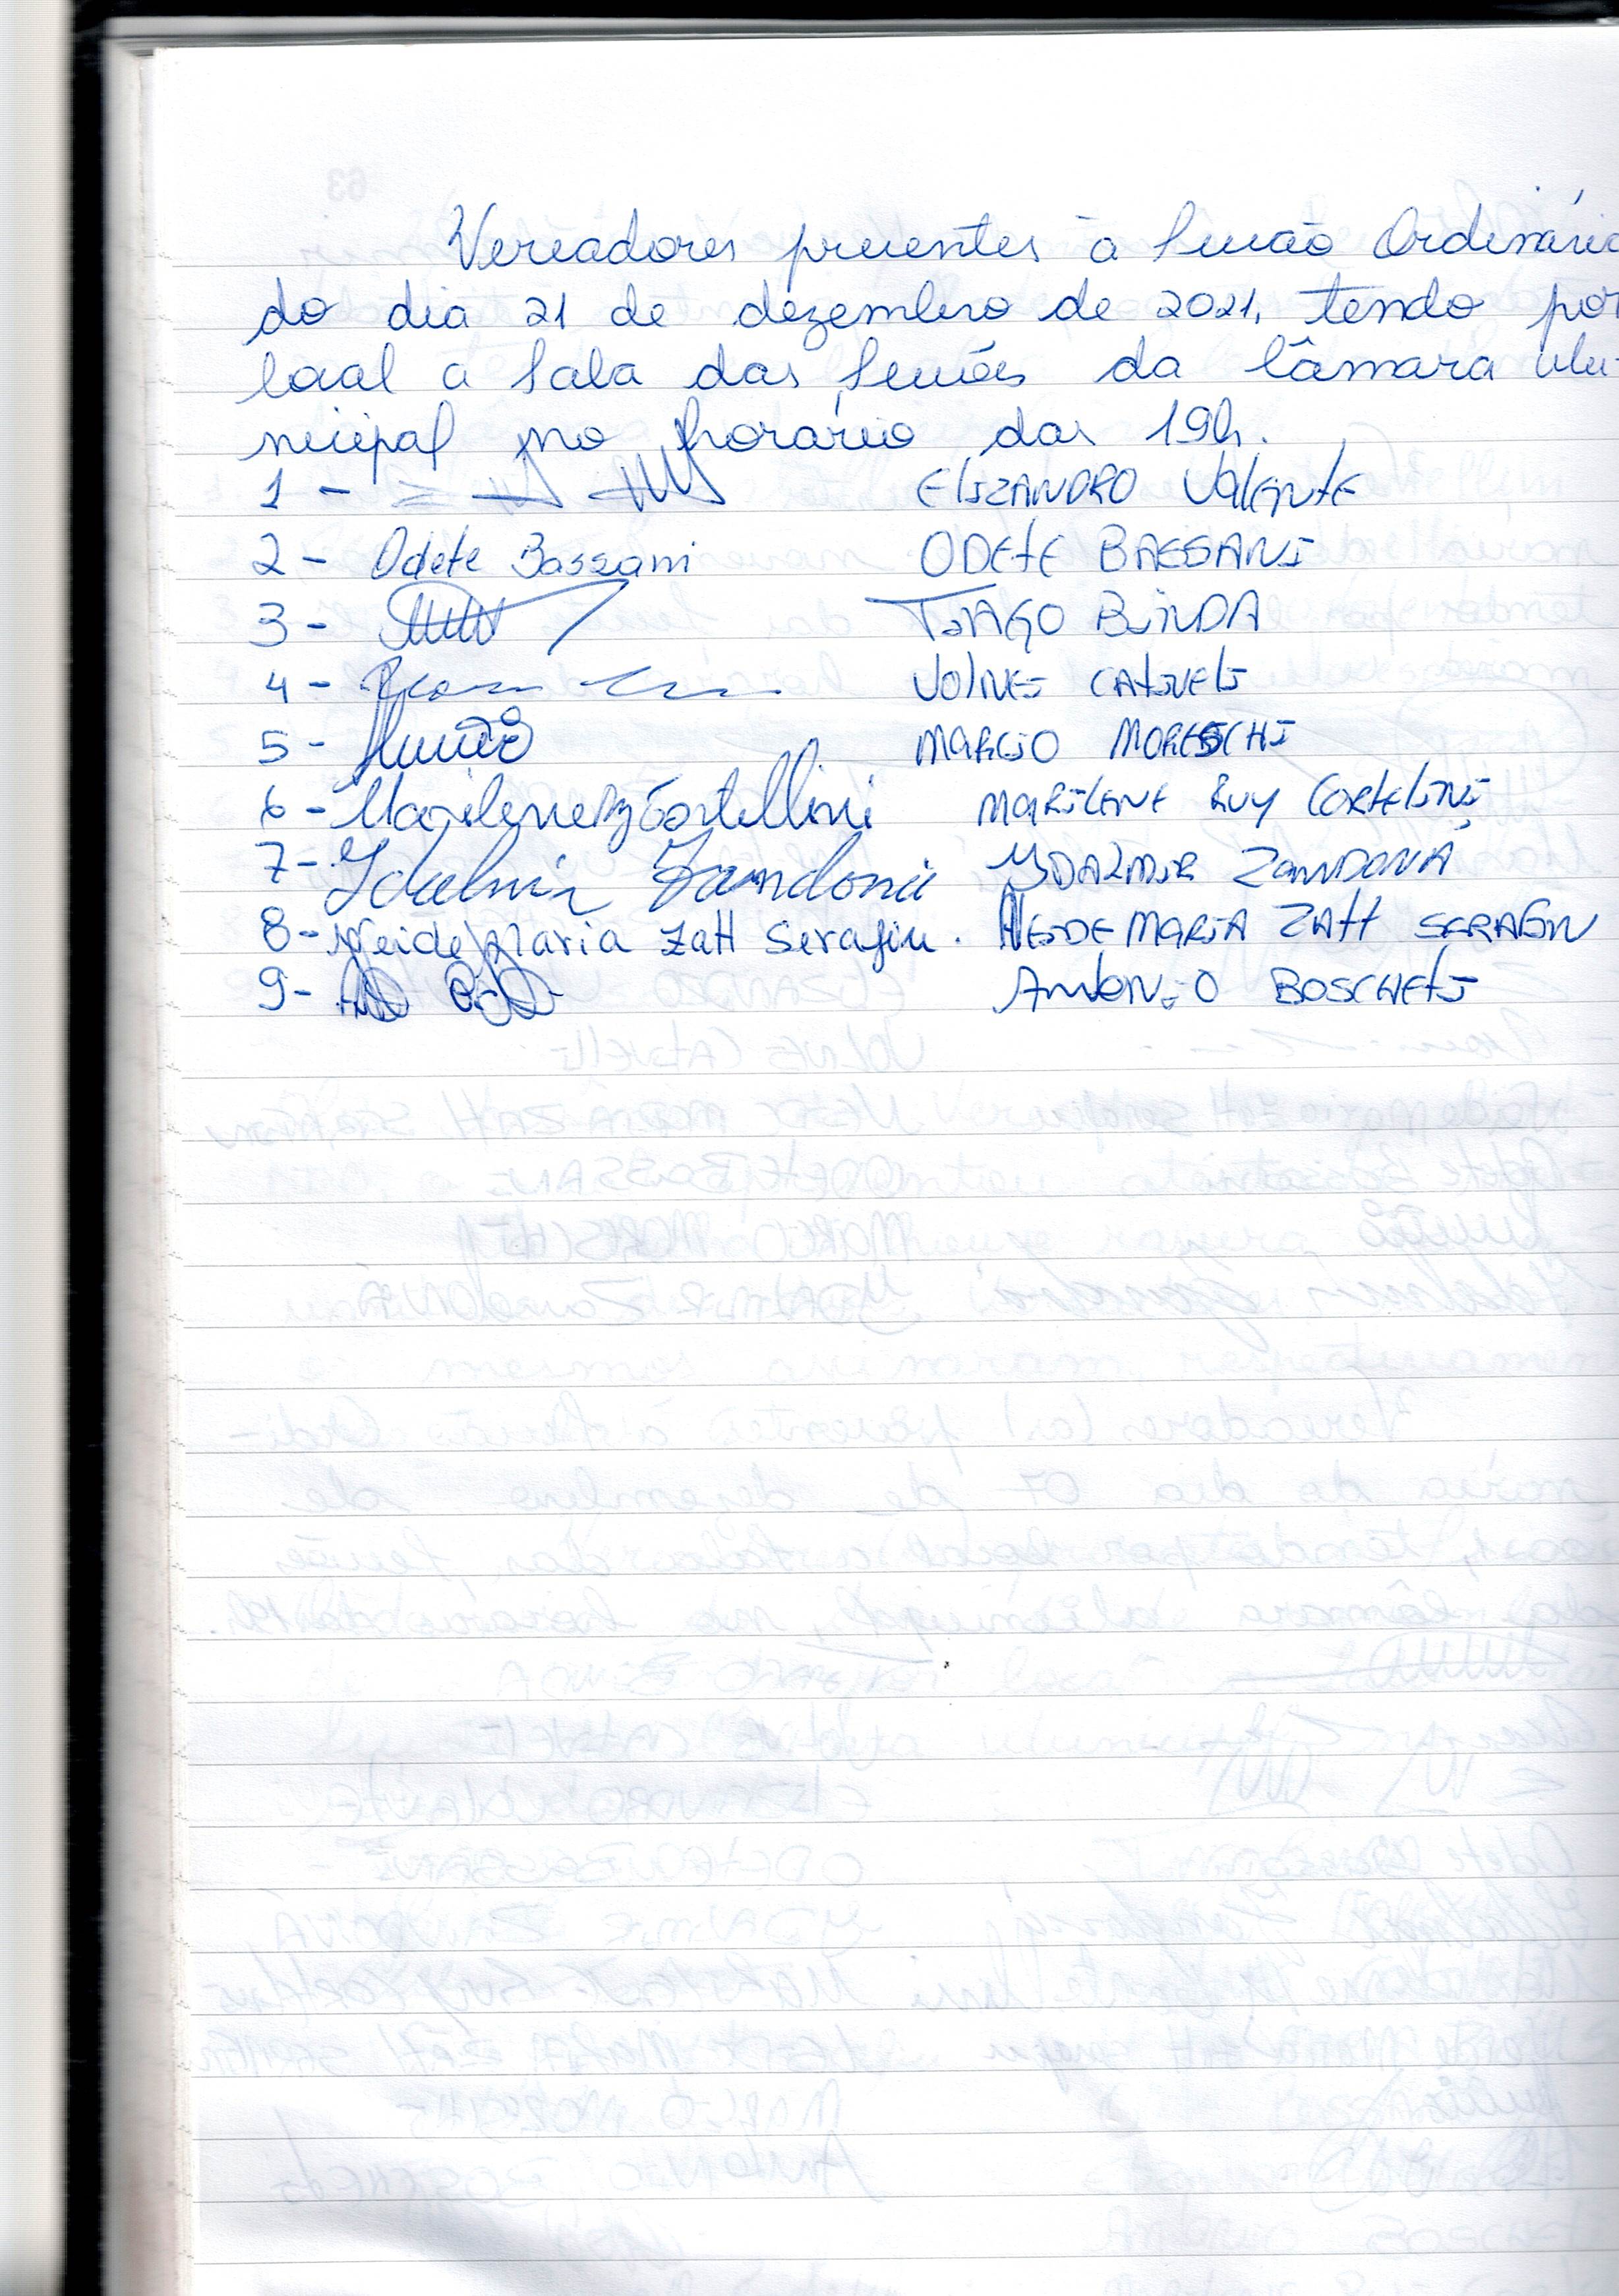 Vereadores presentes à Sessão Ordinária
do dia 21 de dezembro de 2021, tendo por
local a Sala das Sessões da Câmara Mu-
nicipal no horário das 19h.
1 - ELIZANDRO VALENTE
2 - Odete Bassani ODETE BASSANI
3 - TIAGO BINDA
4 - VOLNEI CATIVELI
5 - MARCIO MORESCHI
6 - Marilene Ruy Cortellini MARILENE RUY CORTELINI
7 - Idalmir Zandoná YDALMIR ZANDONÁ
8 - Neide Maria Zatt Serafin. NEIDE MARIA ZATT SERAFIN
9 - ANTONIO BOSCHETI